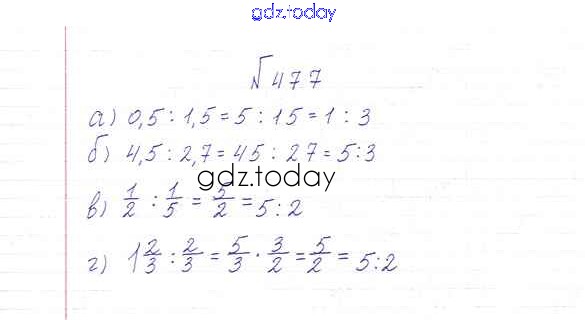 gdz.today
№477
а) 0,5 : 1,5 = 5 : 15 = 1 : 3
б) 4,5 : 2,7 = 45 : 27 = 5:3
gdz.today
в) 1/2 : 1/5 = 5/2 = 5:2
г) 1 2/3 : 2/3 = 5/3 · 3/2 = 5/2 = 5:2